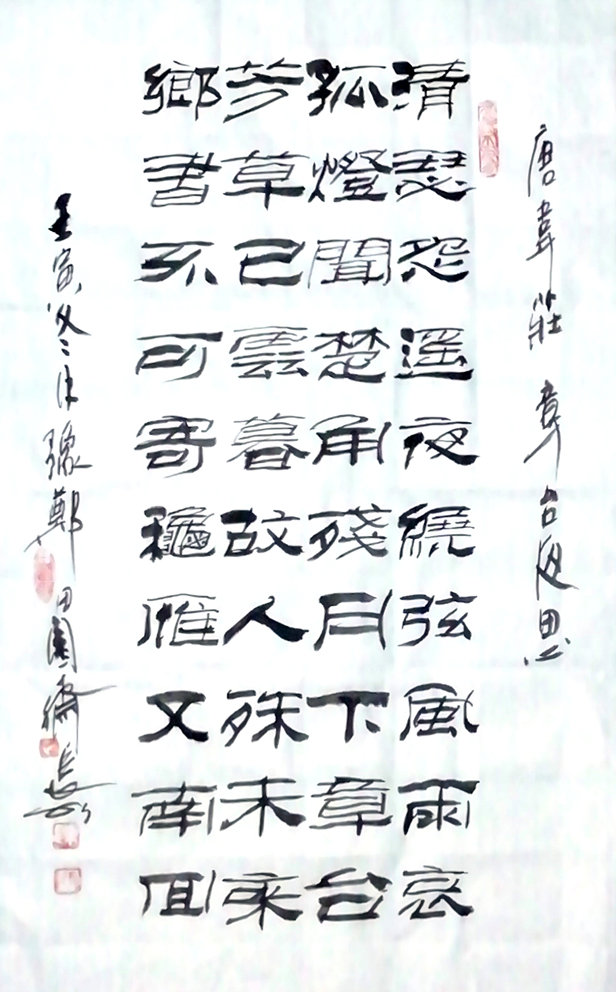 唐韋莊 章台夜思
清瑟怨遥夜繞弦風雨哀
孤燈聞楚角殘月下章台
芳草已雲暮故人殊未来
鄉書不可寄龝雁又南回
壬寅冬 豫鄭田園齋